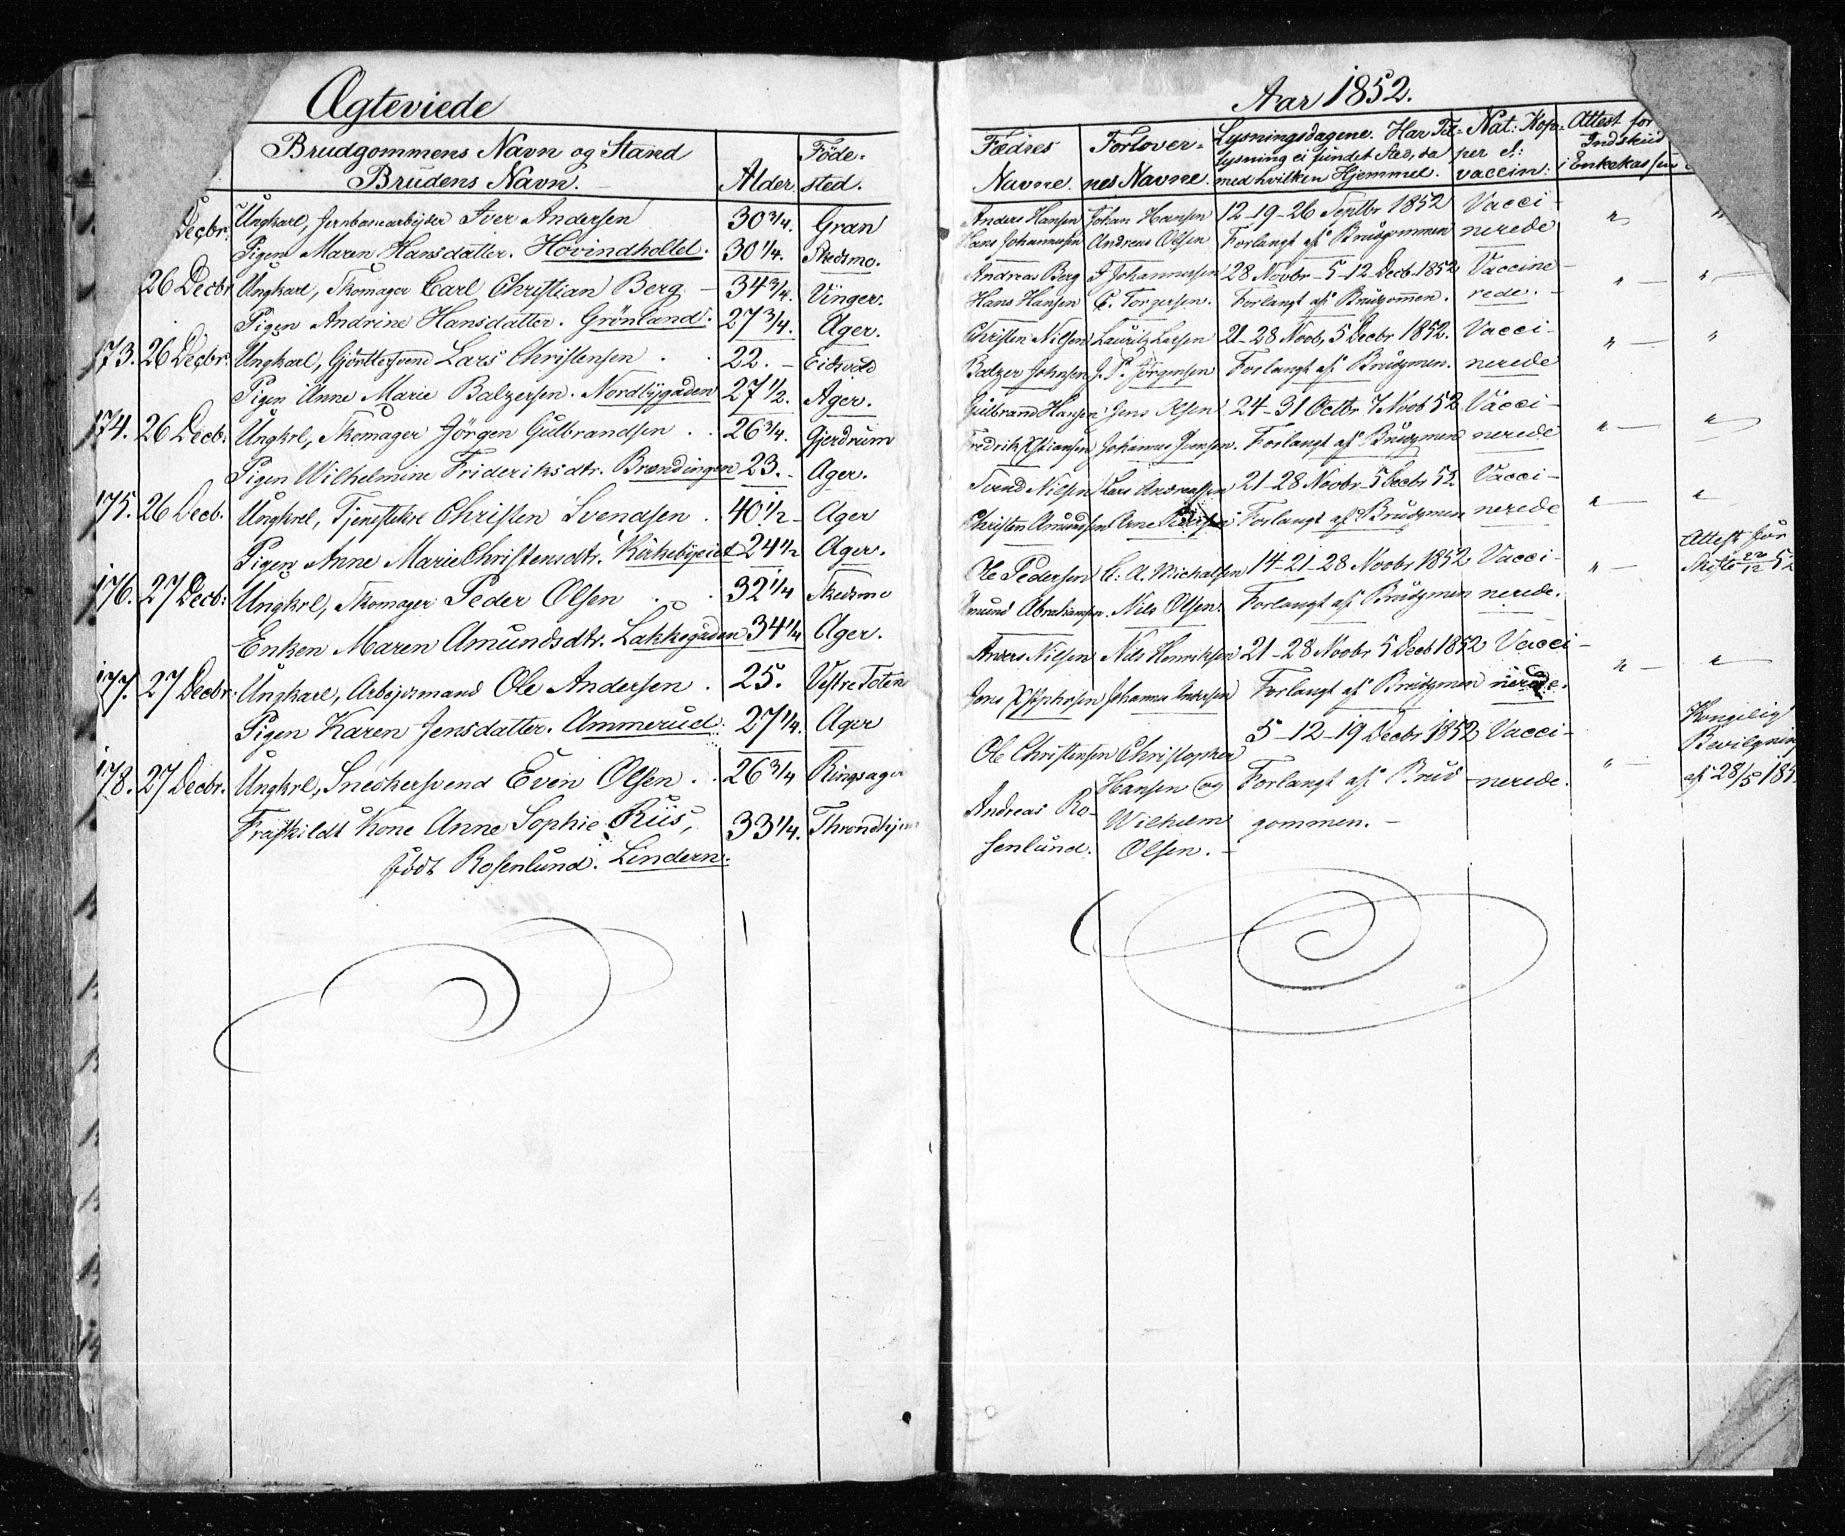 Ægteviede
Brudgommens Navn og Stand
Brudens Navn.
Alder.
Føde-
sted.
Decbr. Ungkarl, Jernbanearbejder Iver Andersen 30 3/4. Gran
Pigen Maren Hansdatter. Hovindholtet. 30 1/4. Skedsmo.
26 Decbr Ungkarl, Skomager Carl Christian Berg 34 3/4. Vinger.
Pigen Andrine Hansdatter. Grönland. 27 3/4. Ager.
173. 26 Decbr. Ungkarl, Gjörtlersvend Lars Christensen . . 22. Eidsvold
Pigen Anne Marie Balzersen. Nordbygaden 27 1/2. Ager.
174. 26 Decb. Ungkrl, Skomager Jörgen Gulbrandsen . . 26 3/4. Gjerdrum
Pigen Wilhelmine Frideriksdtr. Brændingen 23. Ager.
175. 26 Decb. Ungkrl, Tjenestekrl Christen Svendsen . 40 1/2 Ager
Pigen Anne Marie Christensdtr. Kirkebyeiet 24 1/2 Ager.
176. 27 Decb: Ungkrl, Skomager Peder Olsen . . 32 1/4 Skedsmo
Enken Maren Amundsdtr. Lakkegaden 34 1/4 Ager.
177. 27 Decbr. Ungkarl, Arbejdsmand Ole Andersen . 25. Vestre Toten
Pigen Karen Jensdatter. Ammerud. 27 1/4. Ager
178. 27 Decbr. Ungkrl, Snedkersvend Even Olsen . . 26 3/4 Ringsager
Fraskildt Kone Anne Sophie Riis, 33 1/4. Throndhjem
född Rosenlund. Lindern.
Aar 1852.
Fædres
Navne.
Forlover-
nes Navne.
Lysningsdagene. Har Til-
lysning ei fundet Sted, da
med hvilken Hjemmel.
Nat: Kop-
per el:
vaccin:
Attest for
Indskud
i Enkekassen
Anders Hansen Johan Hansen 12-19-26 Septbr 1852 Vacci- " "
Hans Johannesen Andreas Olsen Forlangt af Brudgommen nerede
Andreas Berg F. Johannesen 28 Novbr - 5-12 Decb. 1852 Vaccine- " "
Hans Hansen C. Torgersen. Forlangt af Brudgommen. rede.
Christen Nilsen Lauritz Larsen 21-28 Novb, 5 Decbr 1852. Vacci- " "
Balzer Johnsen J. P. Jörgensen Forlangt af Brudgmen. nerede
Gulbrand Hansen Jens Olsen 24-31 Octbr 7 Novb 52 Vacci- " "
Fredrik Christiansen Johannes Svensen. Forlangt af Brudgmen nerede
Svend Nilsen Lars Andreassen 21-28 Novbr - 5 Decbr 52 Vacci- " "
Christen Amundsen Arne Forlangt af Brudgmen nerede
Ole Pedersen C. A. Michalsen 14-21-28 Novbr 1852 Vacci- " Attest for
Skifte 22/12 52
Amund Abrahamsen. Nils Olsen. Forlangt af Brudgmen nerede.
Anders Nilsen Nils Henriksen 21-28 Novbr 5 Decb 1852 Vacci- " "
Jens Johannes Andersen Forlangt af Brudgmen nerede.
Ole Christensen Christopher 5-12-19 Decbr 1852 Vacci- " Kongelig
Bevilgning
af 28/5 185
Andreas Ro- Hansen og Forlangt af Brud- nerede.
senlund. Wilhelm gommen.
Olsen.